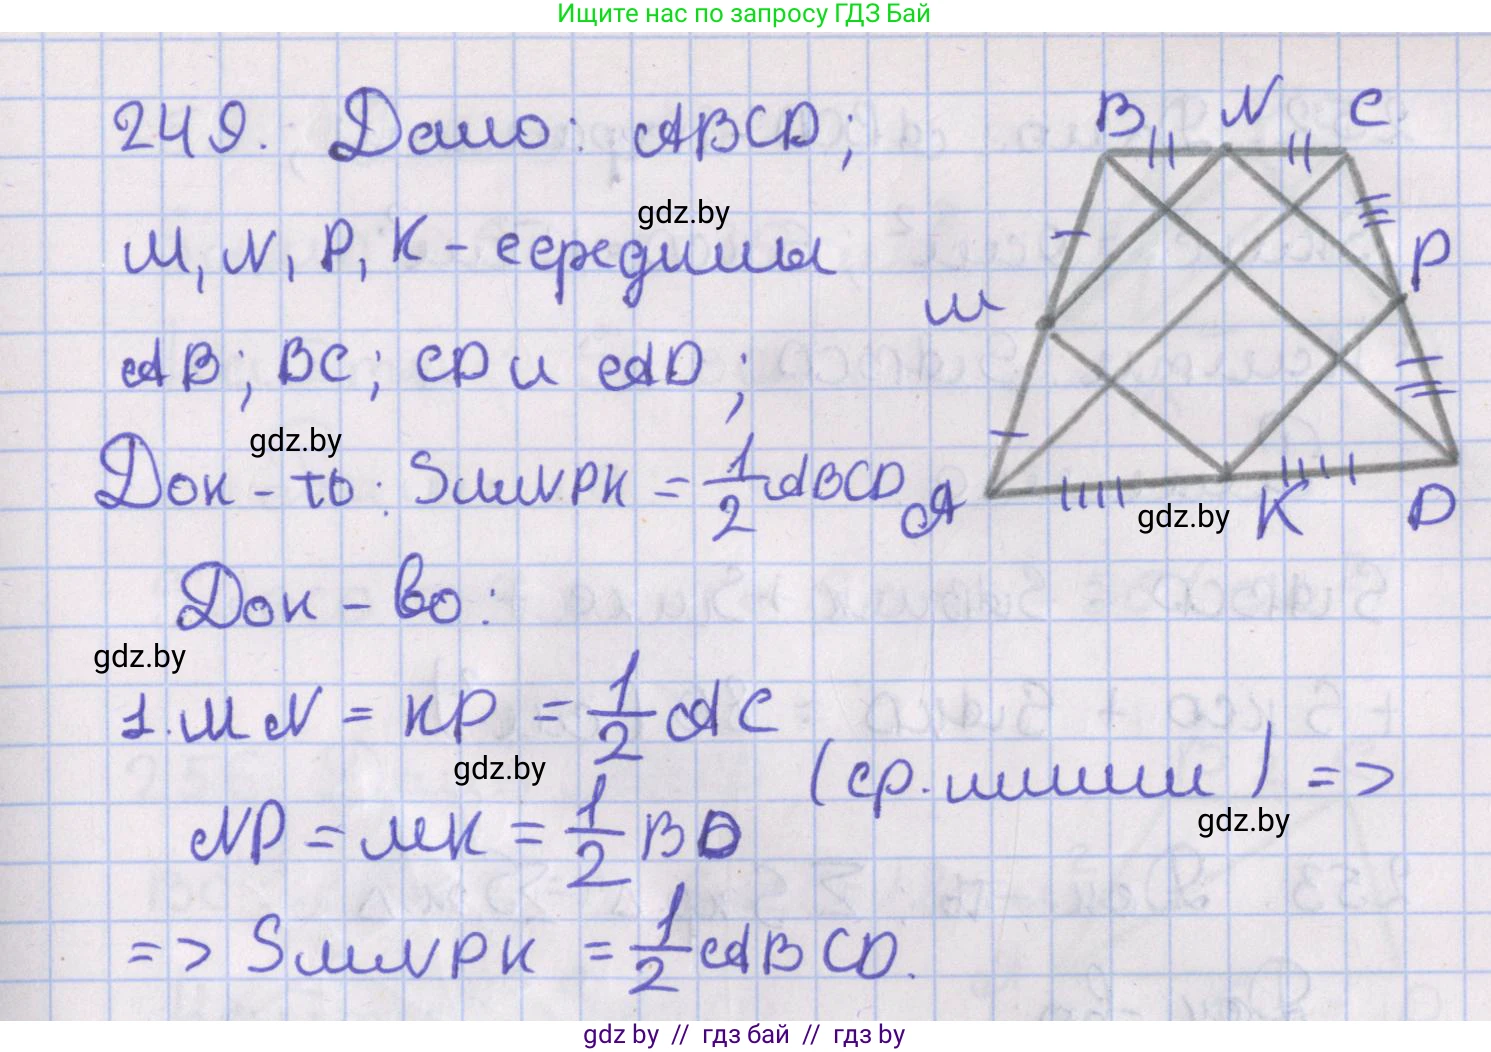 Ищите нас по запросу ГДЗ Бай
249. Дано: ABCD;
gdz.by
M, N, P, K - середины
AB; BC; CD и AD;
gdz.by
Док-ть: SMNPK = 1/2 ABCD
B N C
P
M
A K D
gdz.by
Док-во:
gdz.by
1. MN = KP = 1/2 AC
gdz.by
(ср. линии) =>
gdz.by
NP = MK = 1/2 BD
=> SMNPK = 1/2 ABCD.
gdz by // гдз бай // гдз by